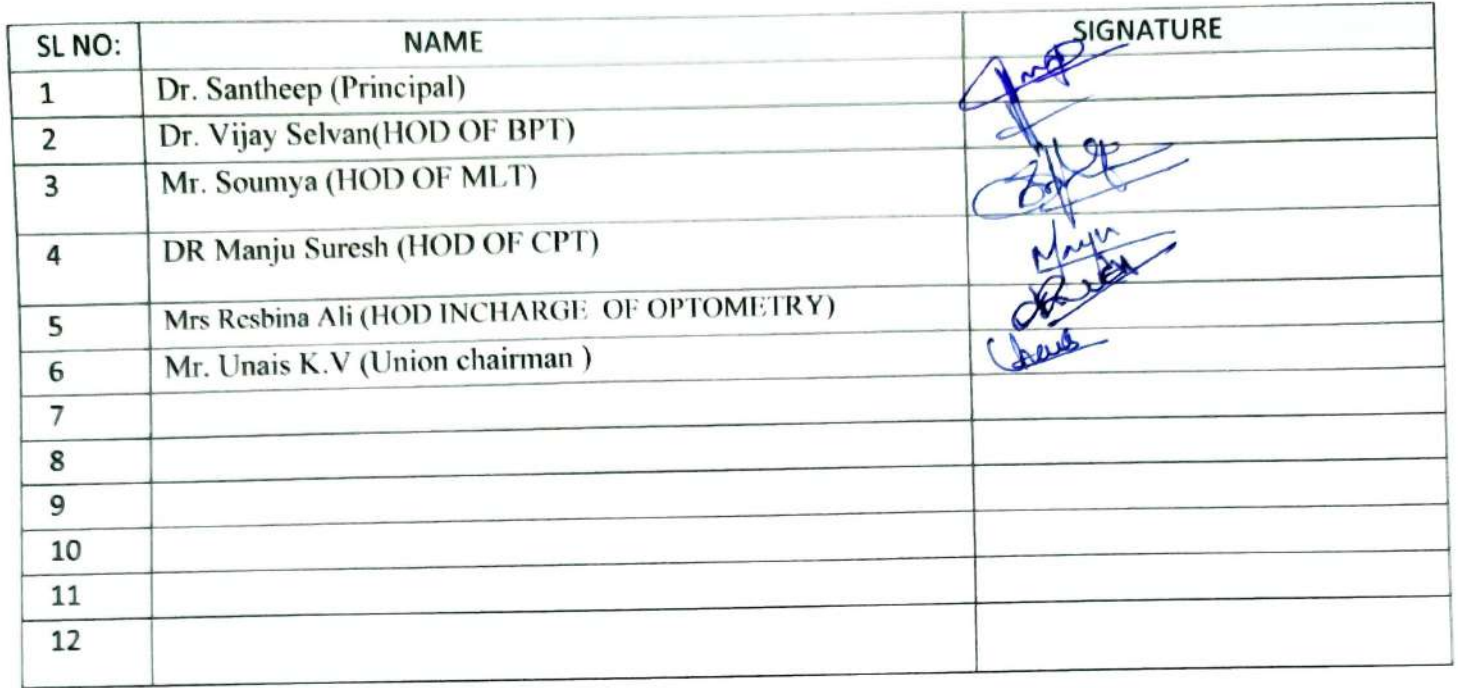 SL NO: NAME SIGNATURE
1 Dr. Santheep (Principal)
2 Dr. Vijay Selvan(HOD OF BPT)
3 Mr. Soumya (HOD OF MLT)
4 DR Manju Suresh (HOD OF CPT) Manju
5 Mrs Resbina Ali (HOD INCHARGE OF OPTOMETRY)
6 Mr. Unais K.V (Union chairman ) Unais
7
8
9
10
11
12